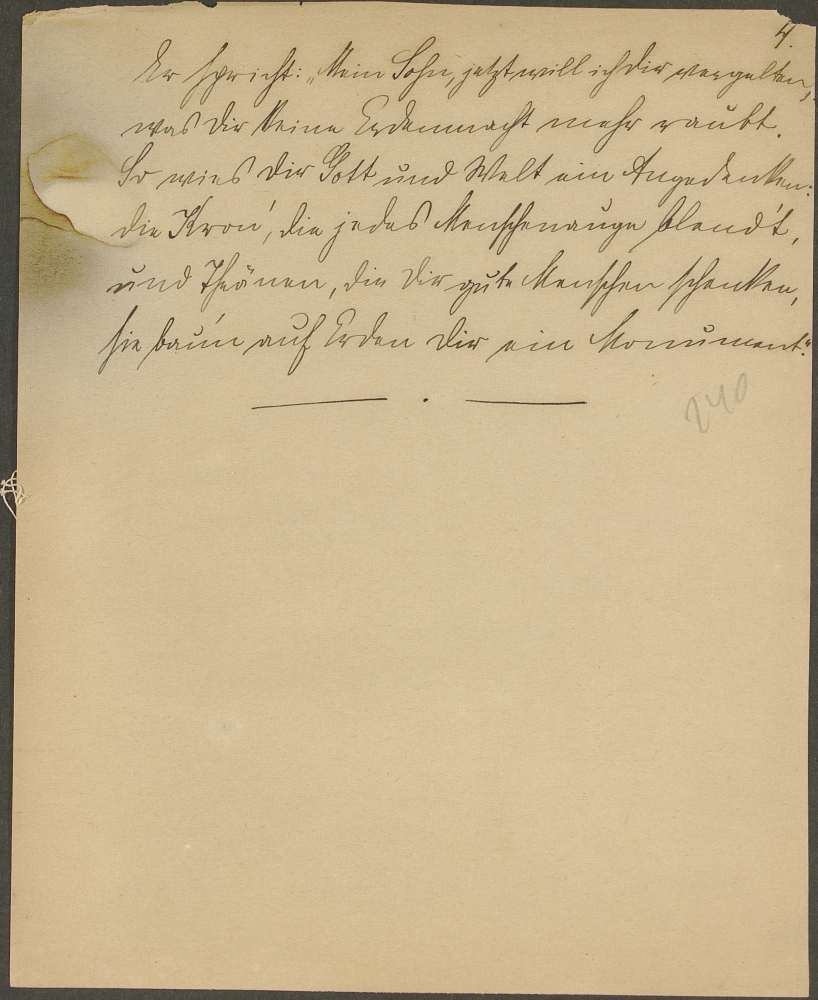 4.
Er spricht: „Mein Sohn, jetzt will ich dir vergelten,
was dir keine Erdenmacht mehr raubt.
So wies dir Gott und Welt ein Angedenken:
die Kron', die jedes Menschenauge blend't,
und Thränen, die dir gute Menschen schenken,
sie bau'n auf Erden dir ein Monument."
240